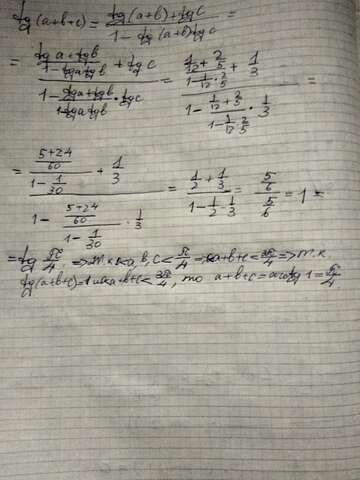 tg(a+b+c) = (tg(a+b)+tg c)/(1-tg(a+b)tg c) =
= ((tg a+tg b)/(1-tg a tg b) + tg c)/(1-(tg a+tg b)/(1-tg a tg b)·tg c) = ((1/12+2/5)/(1-1/12·2/5) + 1/3)/(1-(1/12+2/5)/(1-1/12·2/5)·1/3) =
= (((5+24)/60)/(1-1/30) + 1/3)/(1-((5+24)/60)/(1-1/30)·1/3) = (1/2+1/3)/(1-1/2·1/3) = (5/6)/(5/6) = 1 =
= tg π/4 => т.к a,b,c < π/4 => a+b+c < 3π/4 => т.к
tg(a+b+c)=1 и a+b+c < 3π/4, то a+b+c = arctg 1 = π/4